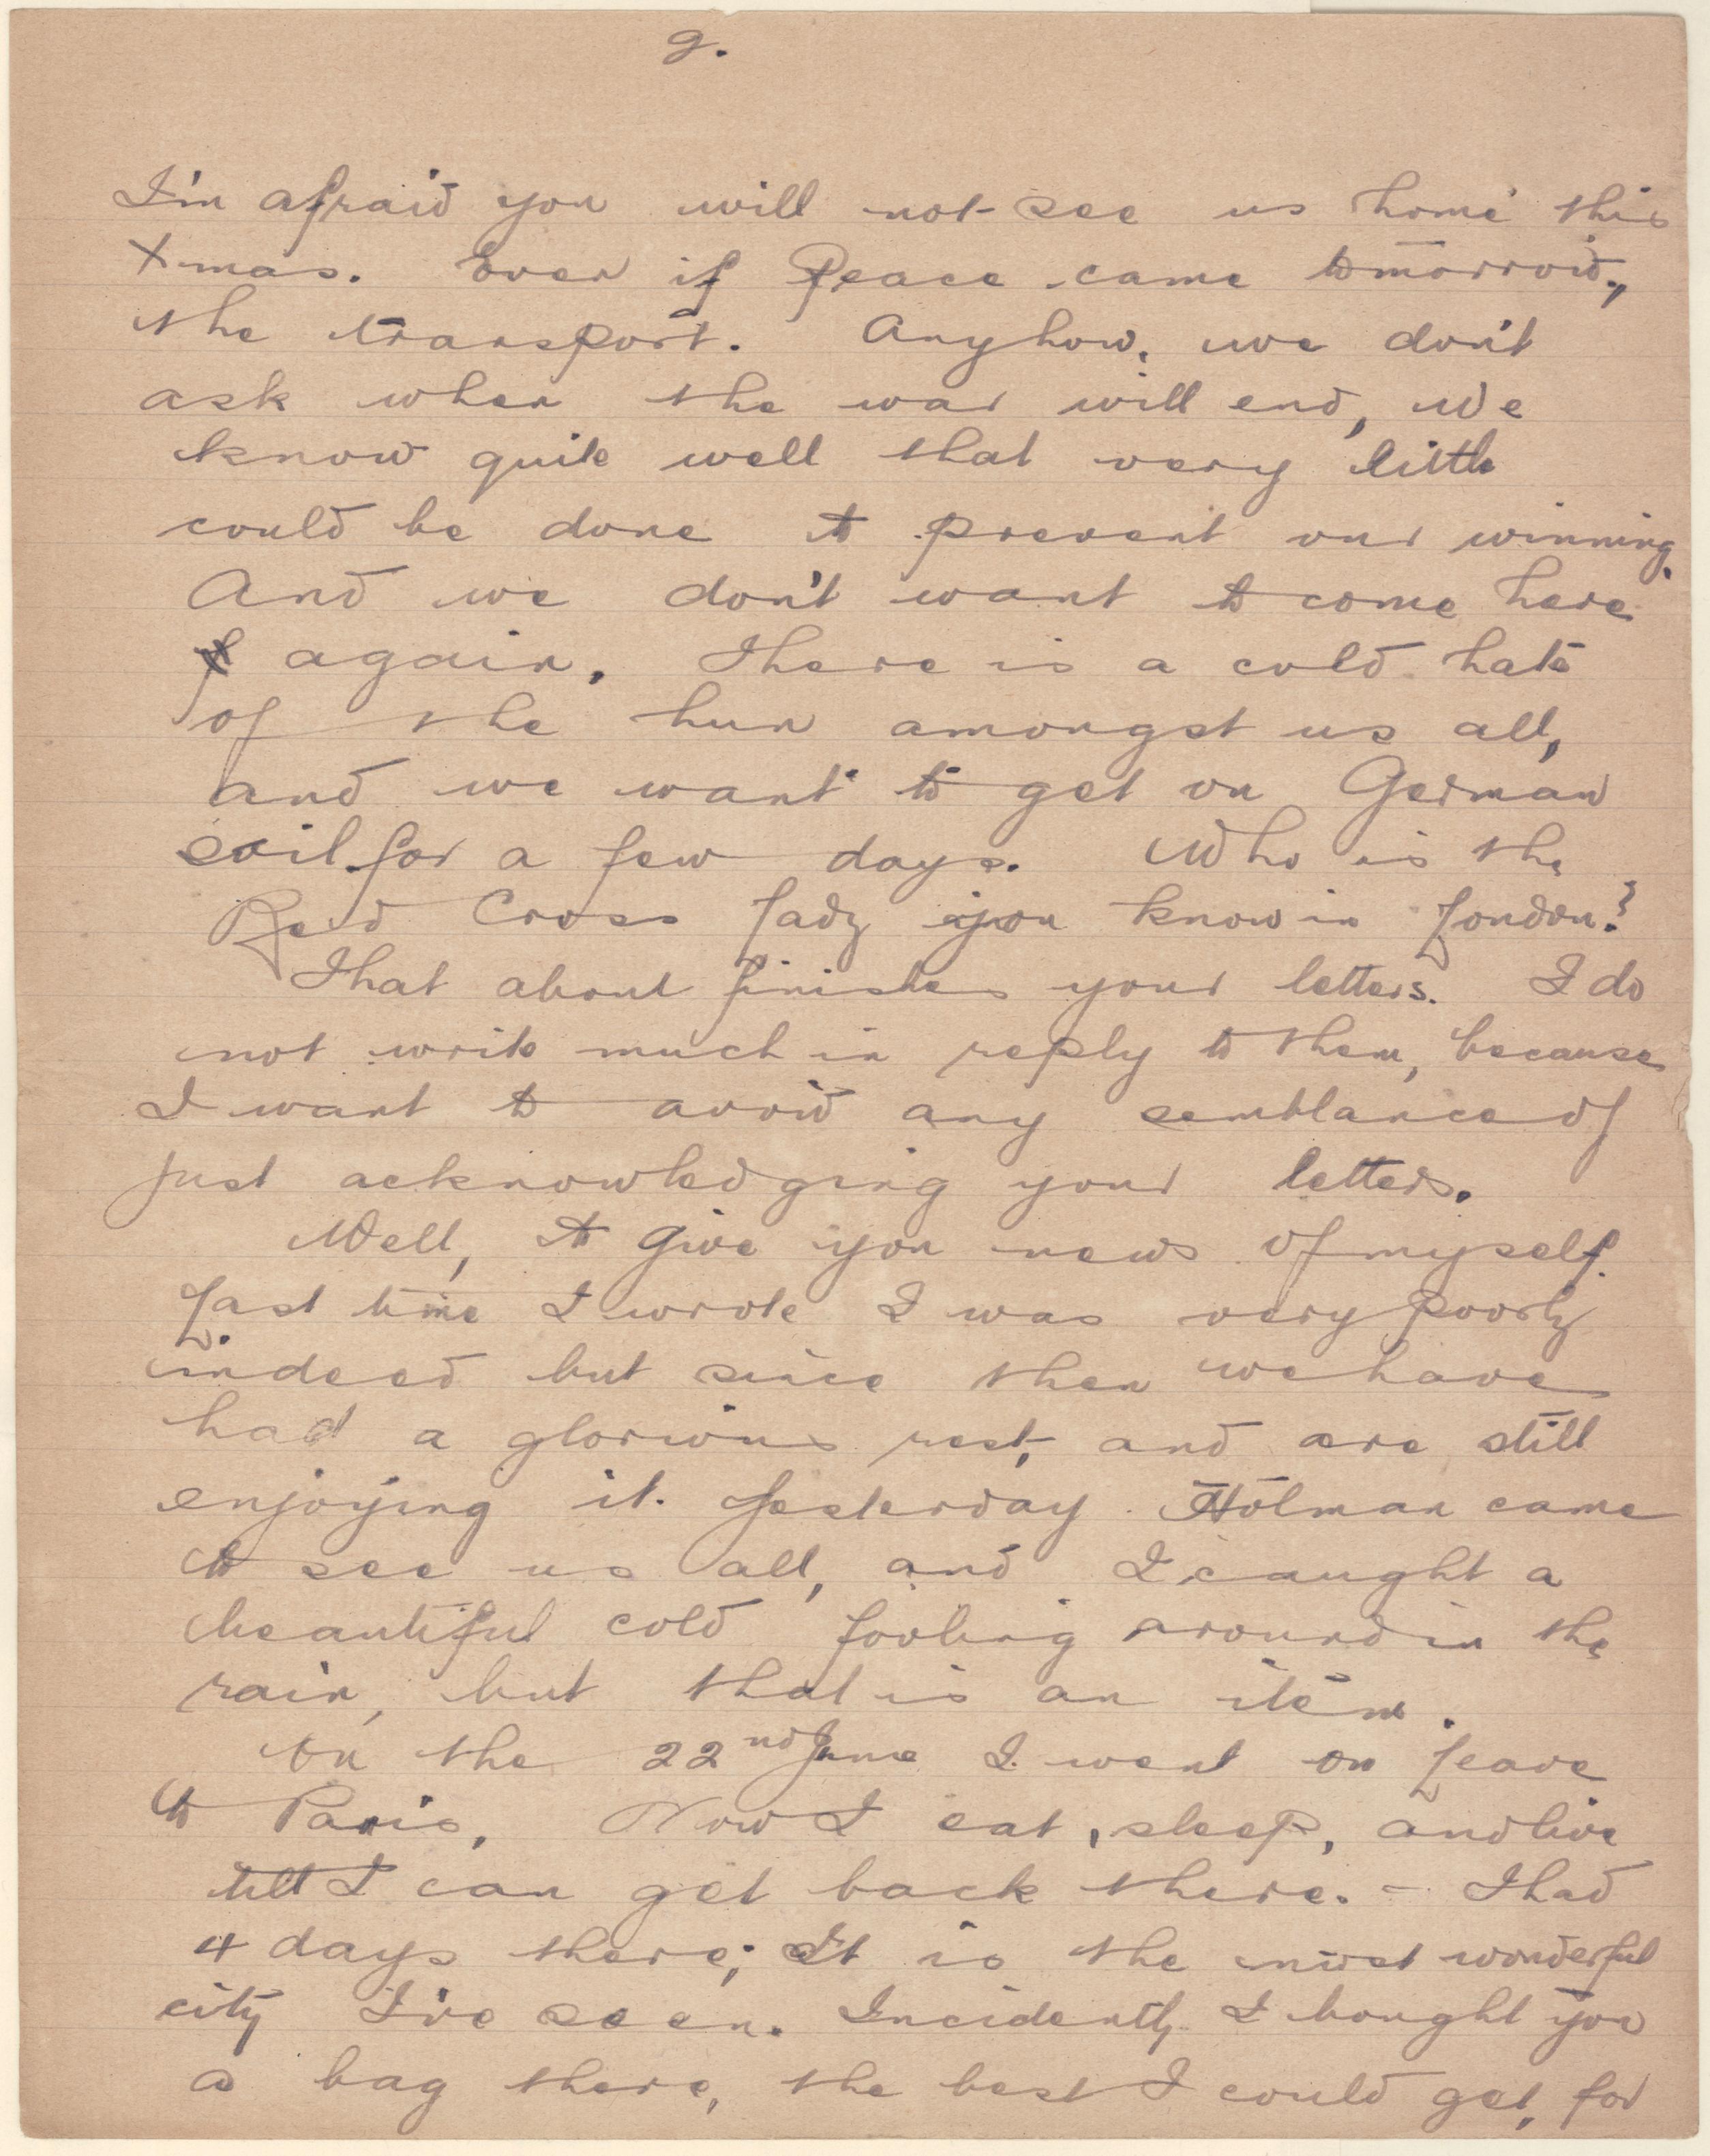 2.
I'm afraid you will not see us home this
Xmas. Even if Peace came tomorrow,
the transport. Anyhow, we don't
ask when the war will end, we
know quite well that very little
could be done to prevent our winning.
And we don't want to come here
again. There is a cold hate
of the hun amongst us all,
and we want to get on German
soil for a few days. Who is the
Red Cross Lady you know in London?
That about finishes your letters. I do
not write much in reply to them, because
I want to avoid any semblance of
just acknowledging your letters.
Well, to give you news of myself.
Last time I wrote I was very poorly
indeed but since then we have
had a glorious rest, and are still
enjoying it. Yesterday Holman came
to see us all, and I caught a
beautiful cold fooling around in the
rain, but that is an item.
On the 22nd June I went on leave
to Paris. Now I eat, sleep, and live
till I can get back there. - I had
4 days there; It is the most wonderful
city I've seen. Incidently I bought you
a bag there, the best I could get, for